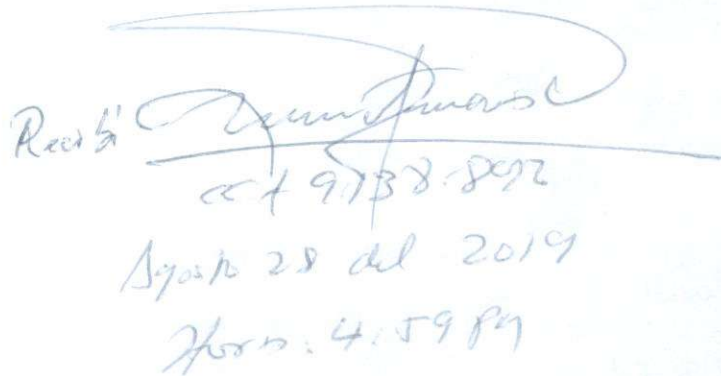 Recibí
cc # 9.738.892
Agosto 28 del 2019
Hora: 4:59 PM